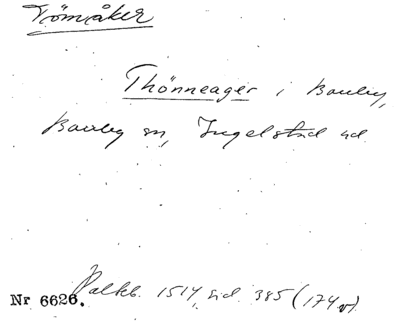 Tömåker
Thönneager i Bawley,
Bawley sn, Ingelstad hd
Nr 6626. Palteb. 1514, sid. 385 (174 v).